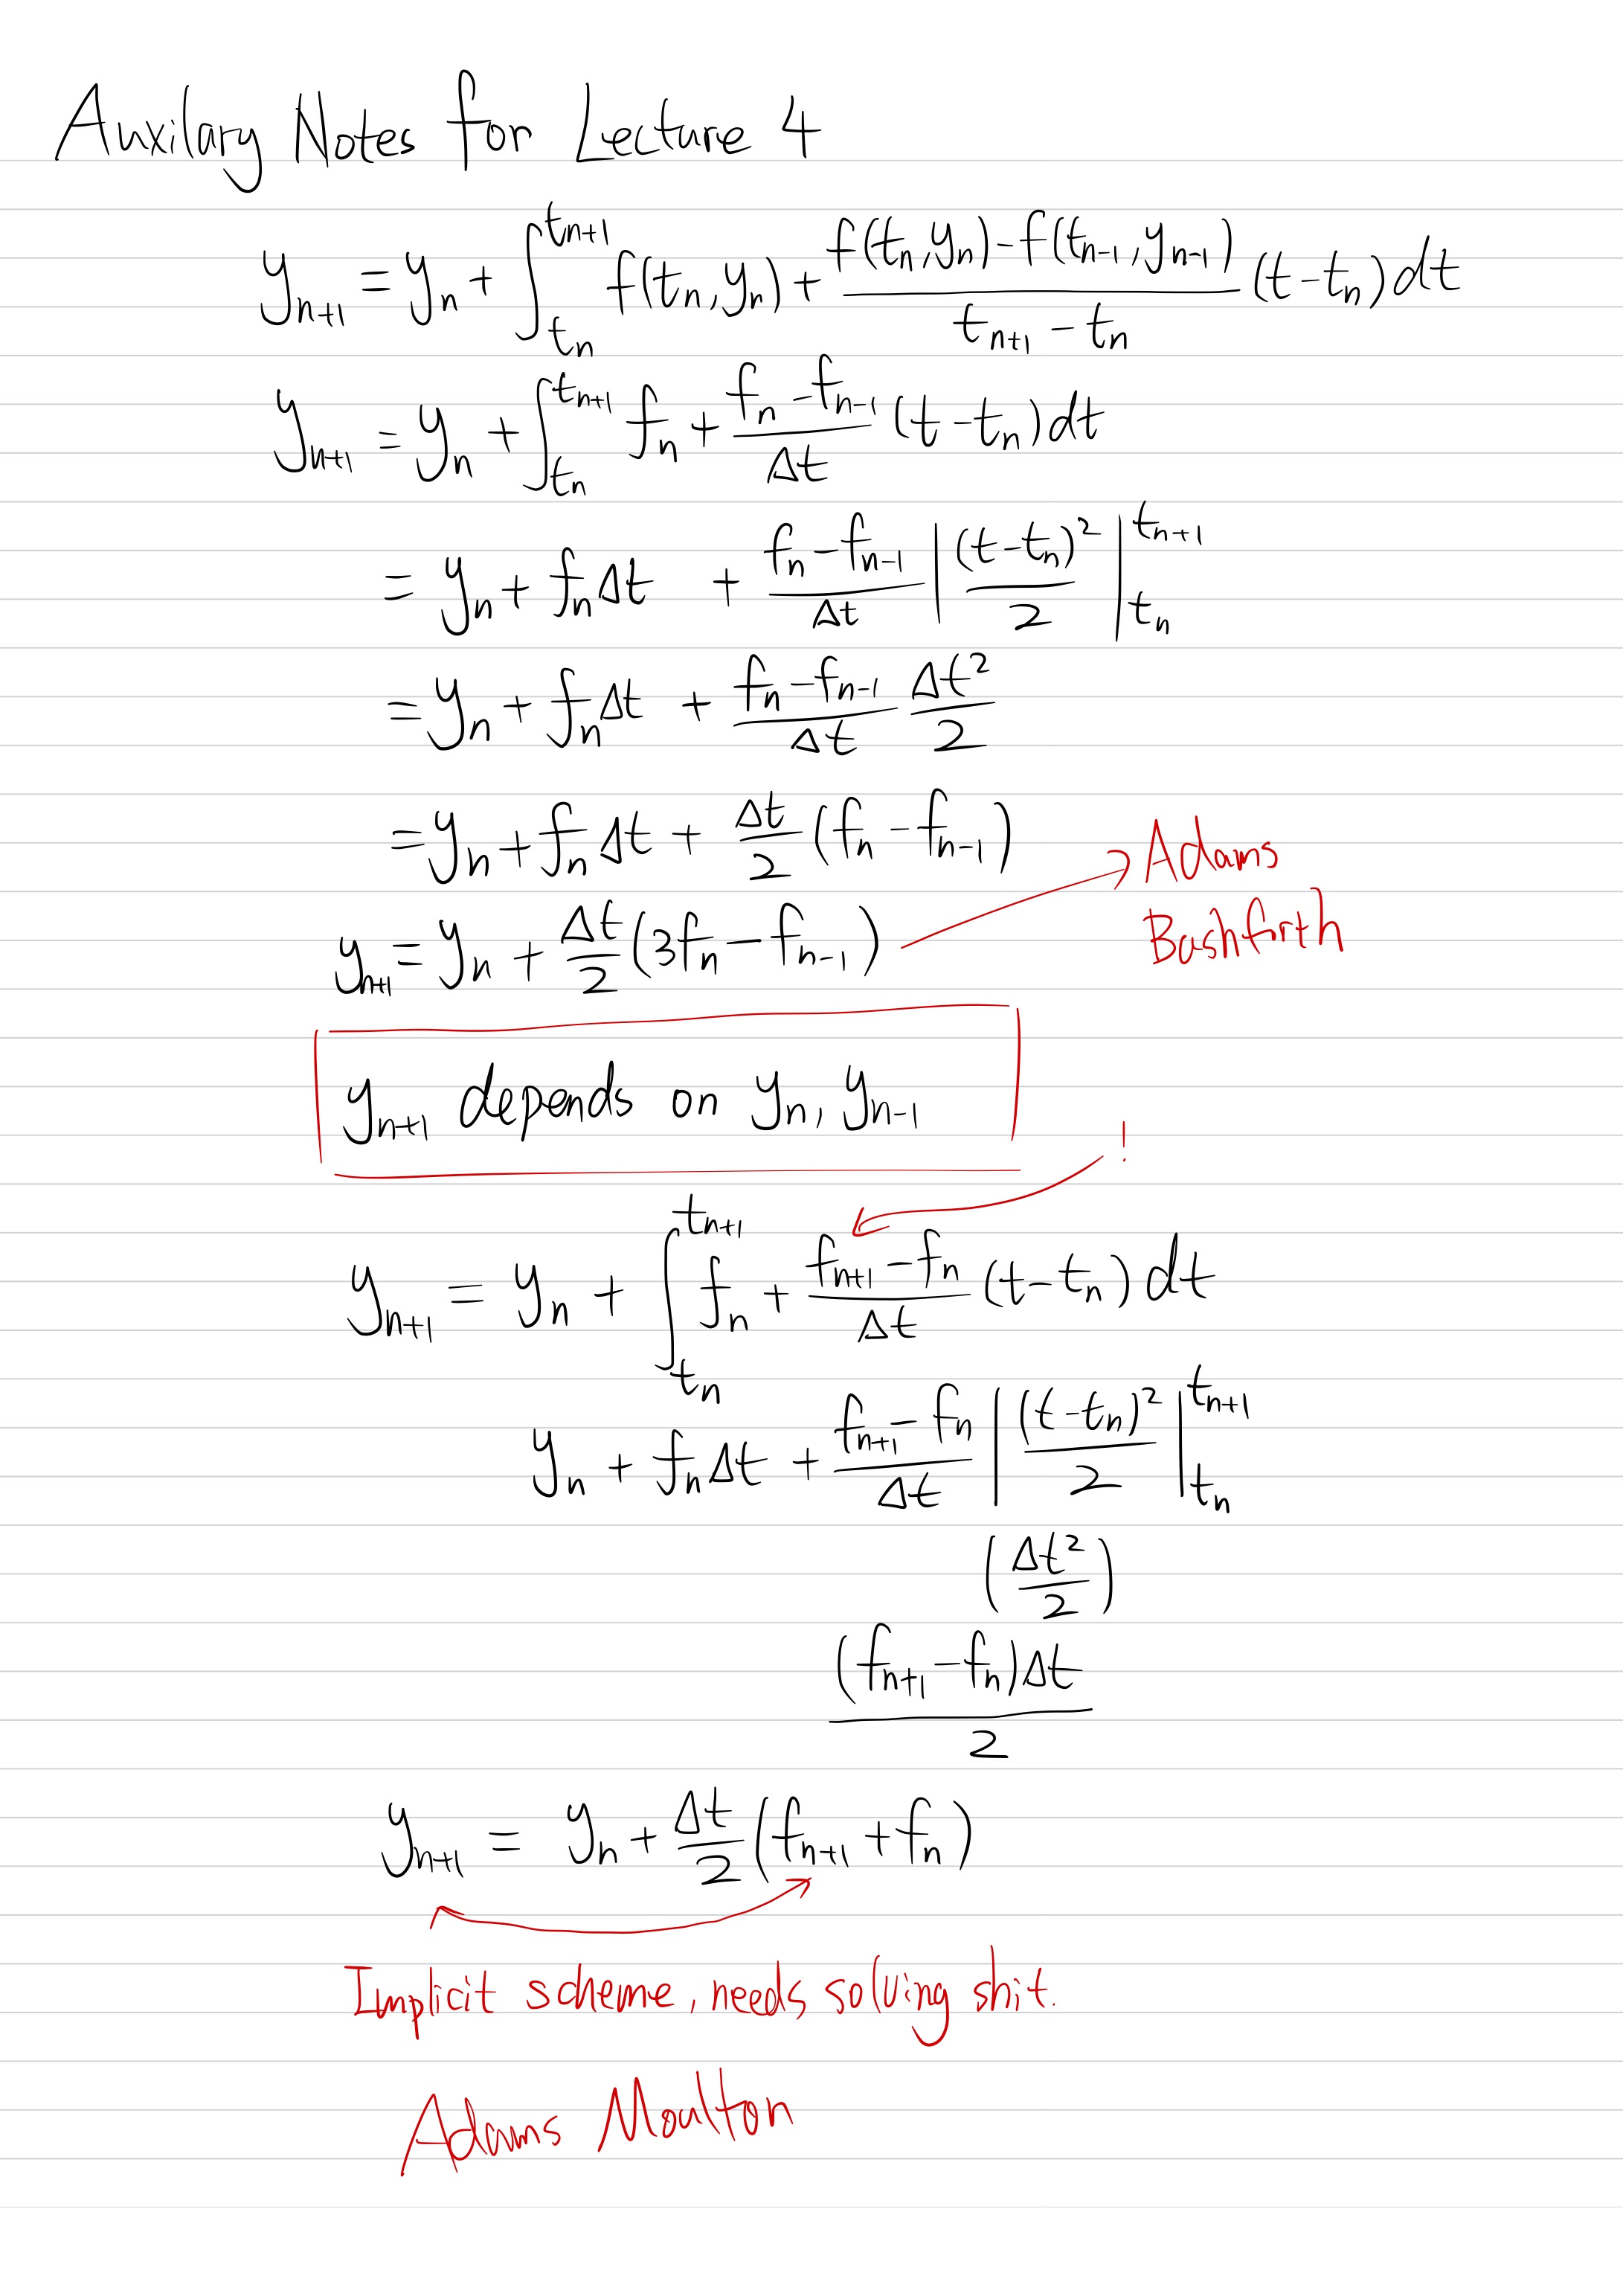 Auxilary Notes for Lecture 4
y_{n+1} = y_n + ∫_{t_n}^{t_{n+1}} f(t_n, y_n) + \frac{f(t_n, y_n) - f(t_{n-1}, y_{n-1})}{t_{n+1} - t_n} (t - t_n) dt
y_{n+1} = y_n + ∫_{t_n}^{t_{n+1}} f_n + \frac{f_n - f_{n-1}}{Δt} (t - t_n) dt
= y_n + f_n Δt + \frac{f_n - f_{n-1}}{Δt} | \frac{(t - t_n)^2}{2} |_{t_n}^{t_{n+1}}
= y_n + f_n Δt + \frac{f_n - f_{n-1}}{Δt} \frac{Δt^2}{2}
= y_n + f_n Δt + \frac{Δt}{2} (f_n - f_{n-1})
y_{n+1} = y_n + \frac{Δt}{2} (3f_n - f_{n-1})
Adams
Bashforth
y_{n+1} depends on y_n, y_{n-1}
!
y_{n+1} = y_n + ∫_{t_n}^{t_{n+1}} f_n + \frac{f_{n+1} - f_n}{Δt} (t - t_n) dt
y_n + f_n Δt + \frac{f_{n+1} - f_n}{Δt} | \frac{(t - t_n)^2}{2} |_{t_n}^{t_{n+1}}
(\frac{Δt^2}{2})
\frac{(f_{n+1} - f_n)Δt}{2}
y_{n+1} = y_n + \frac{Δt}{2} (f_{n+1} + f_n)
Implicit scheme, needs solving shit.
Adams Moulton